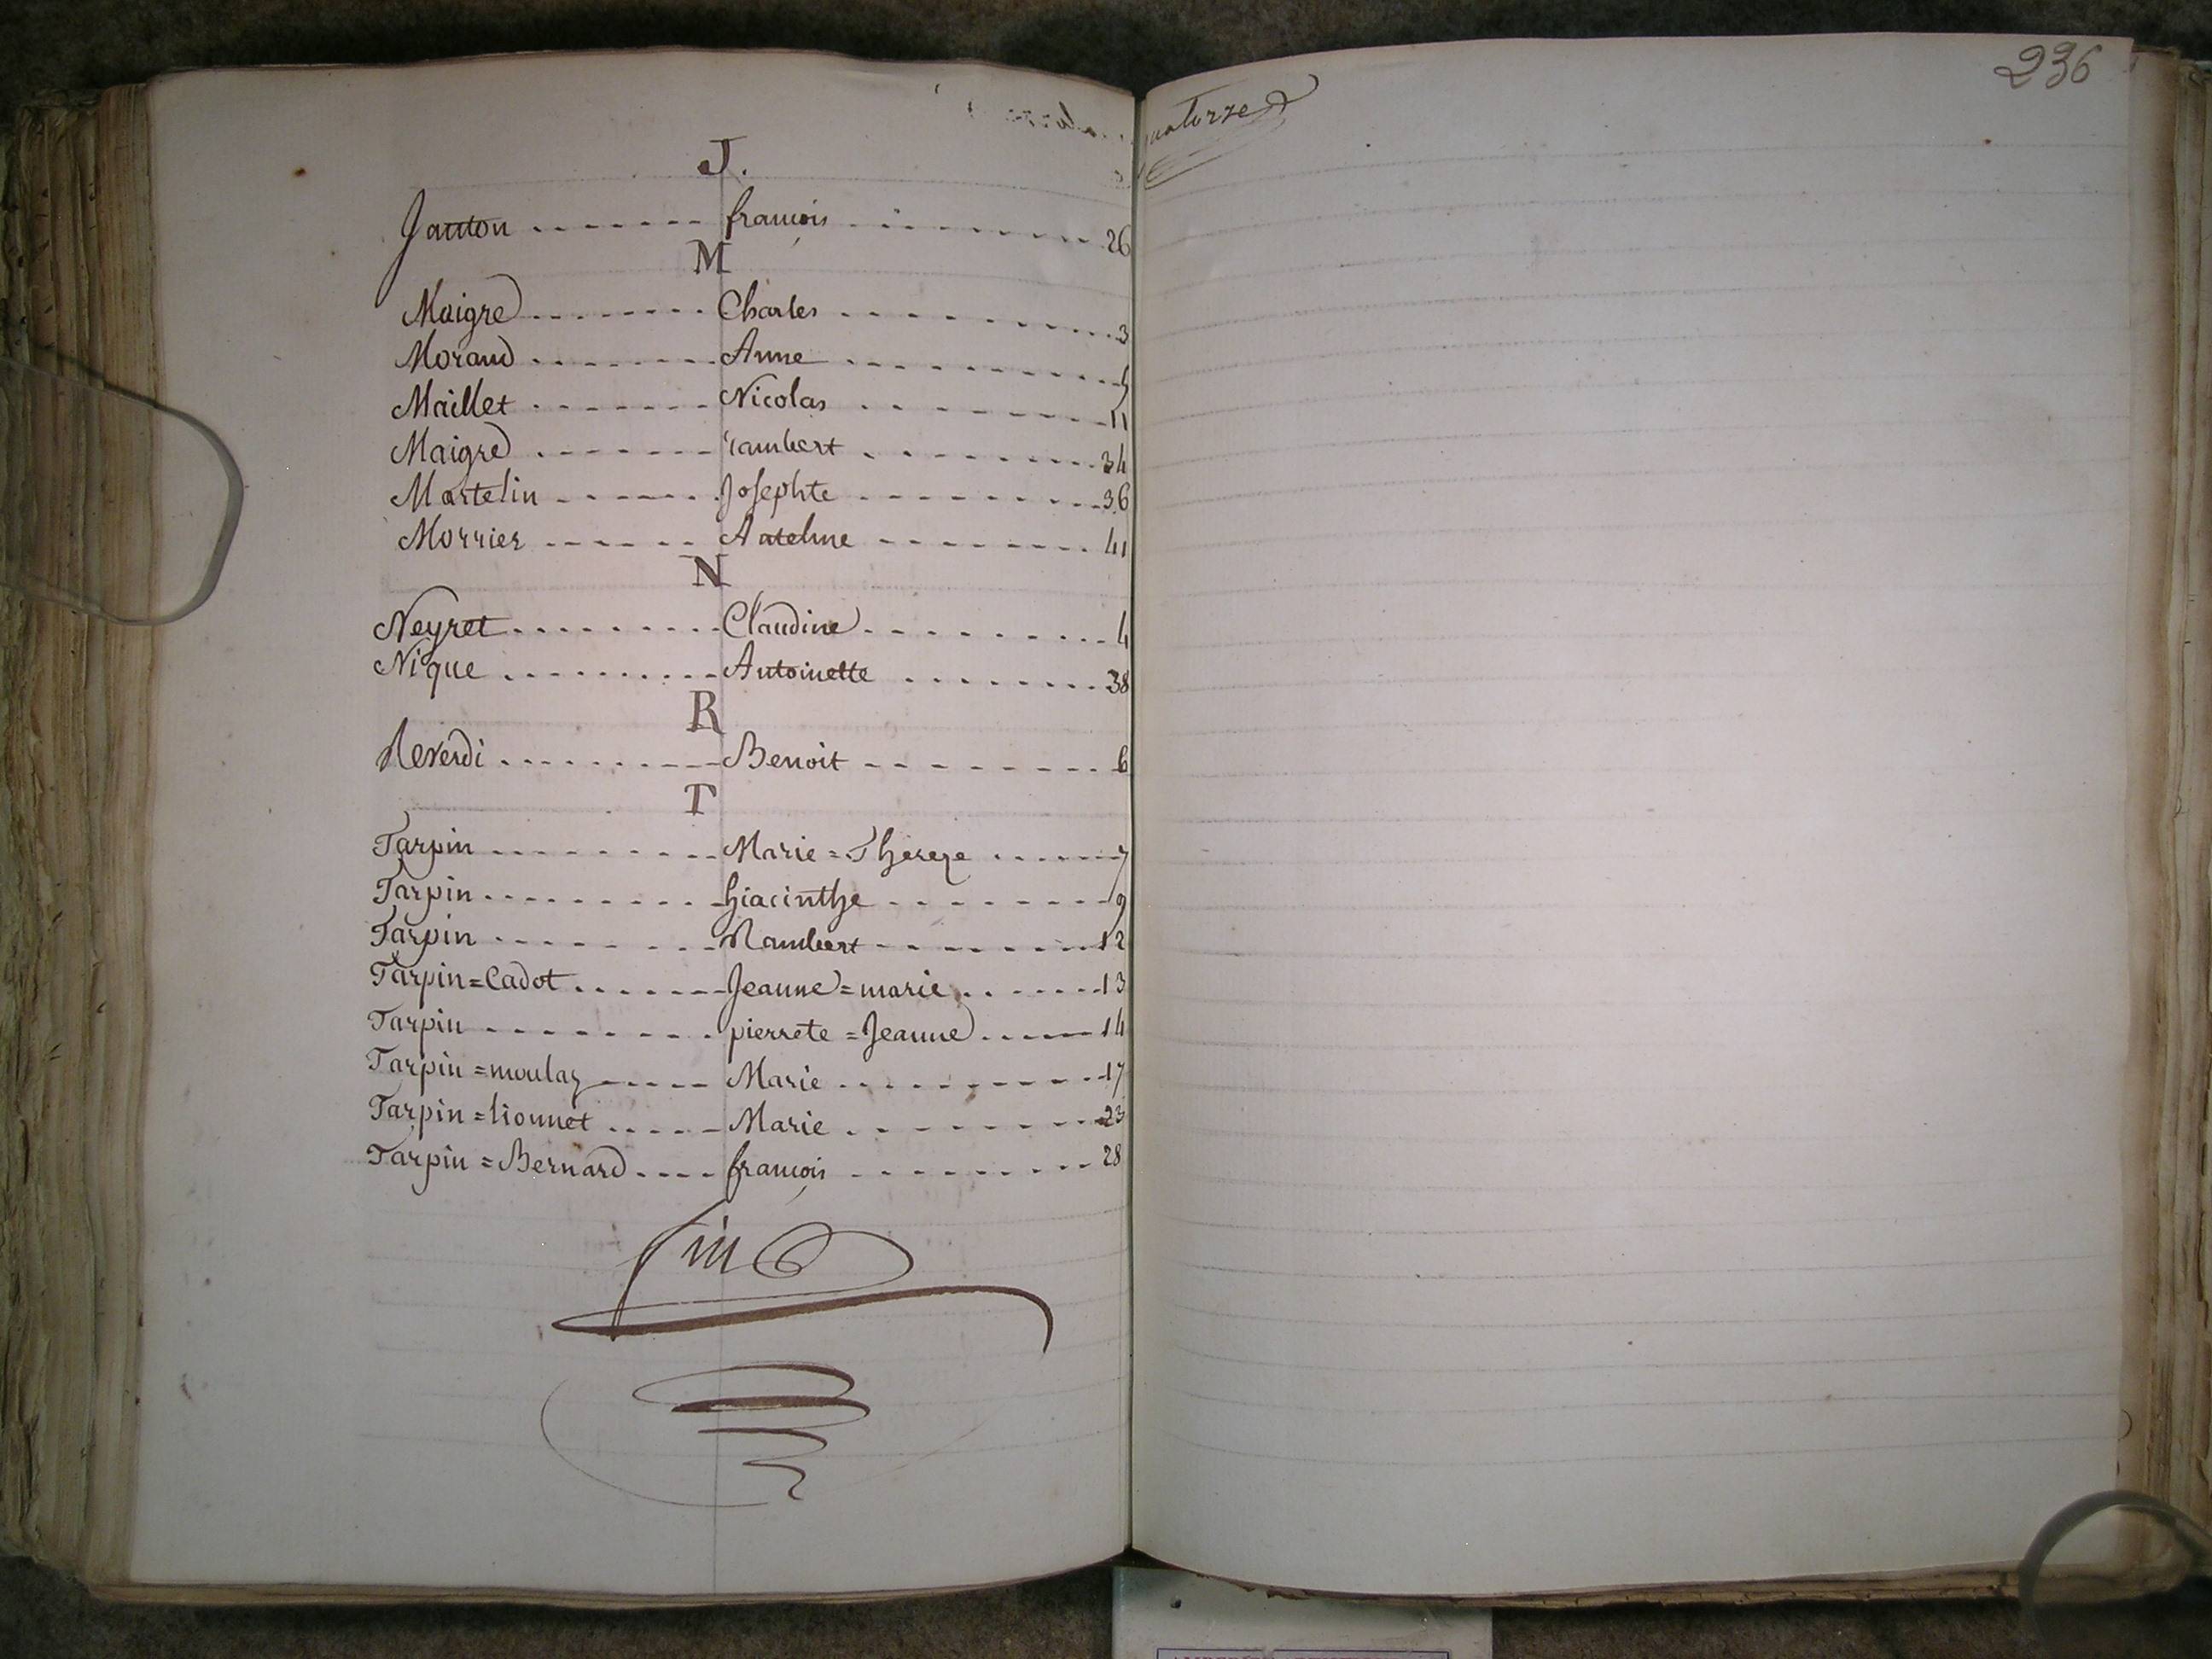 J.
Janton - - - - - - - françois - - - - - - - 26
M
Maigre - - - - - - - Charles - - - - - - - 3
Moraud - - - - - - - Anne - - - - - - - 5
Maillet - - - - - - - Nicolas - - - - - - - 11
Maigre - - - - - - - rambert - - - - - - - 34
Martelin - - - - - - Josephte - - - - - - - 36
Morrier - - - - - - - - - - - - - 41
N
Neyret - - - - - - - Claudine - - - - - - - 4
Nique - - - - - - - Antoinette - - - - - - - 38
R
Reverdi - - - - - - - Benoit - - - - - - - 6
T
Tarpin - - - - - - - Marie=Thereze - - - - - 7
Tarpin - - - - - - - hiacinthe - - - - - - - 9
Tarpin - - - - - - - Rambert - - - - - - - 12
Tarpin=Cadot - - - - - - Jeanne=marie - - - - - 13
Tarpin - - - - - - - pierrete=Jeanne - - - - - 14
Tarpin=moulaz - - - - - Marie - - - - - - - 17
Tarpin=lionnet - - - - - Marie - - - - - - - 23
Tarpin=Bernard - - - - françois - - - - - - - 28
fin
236